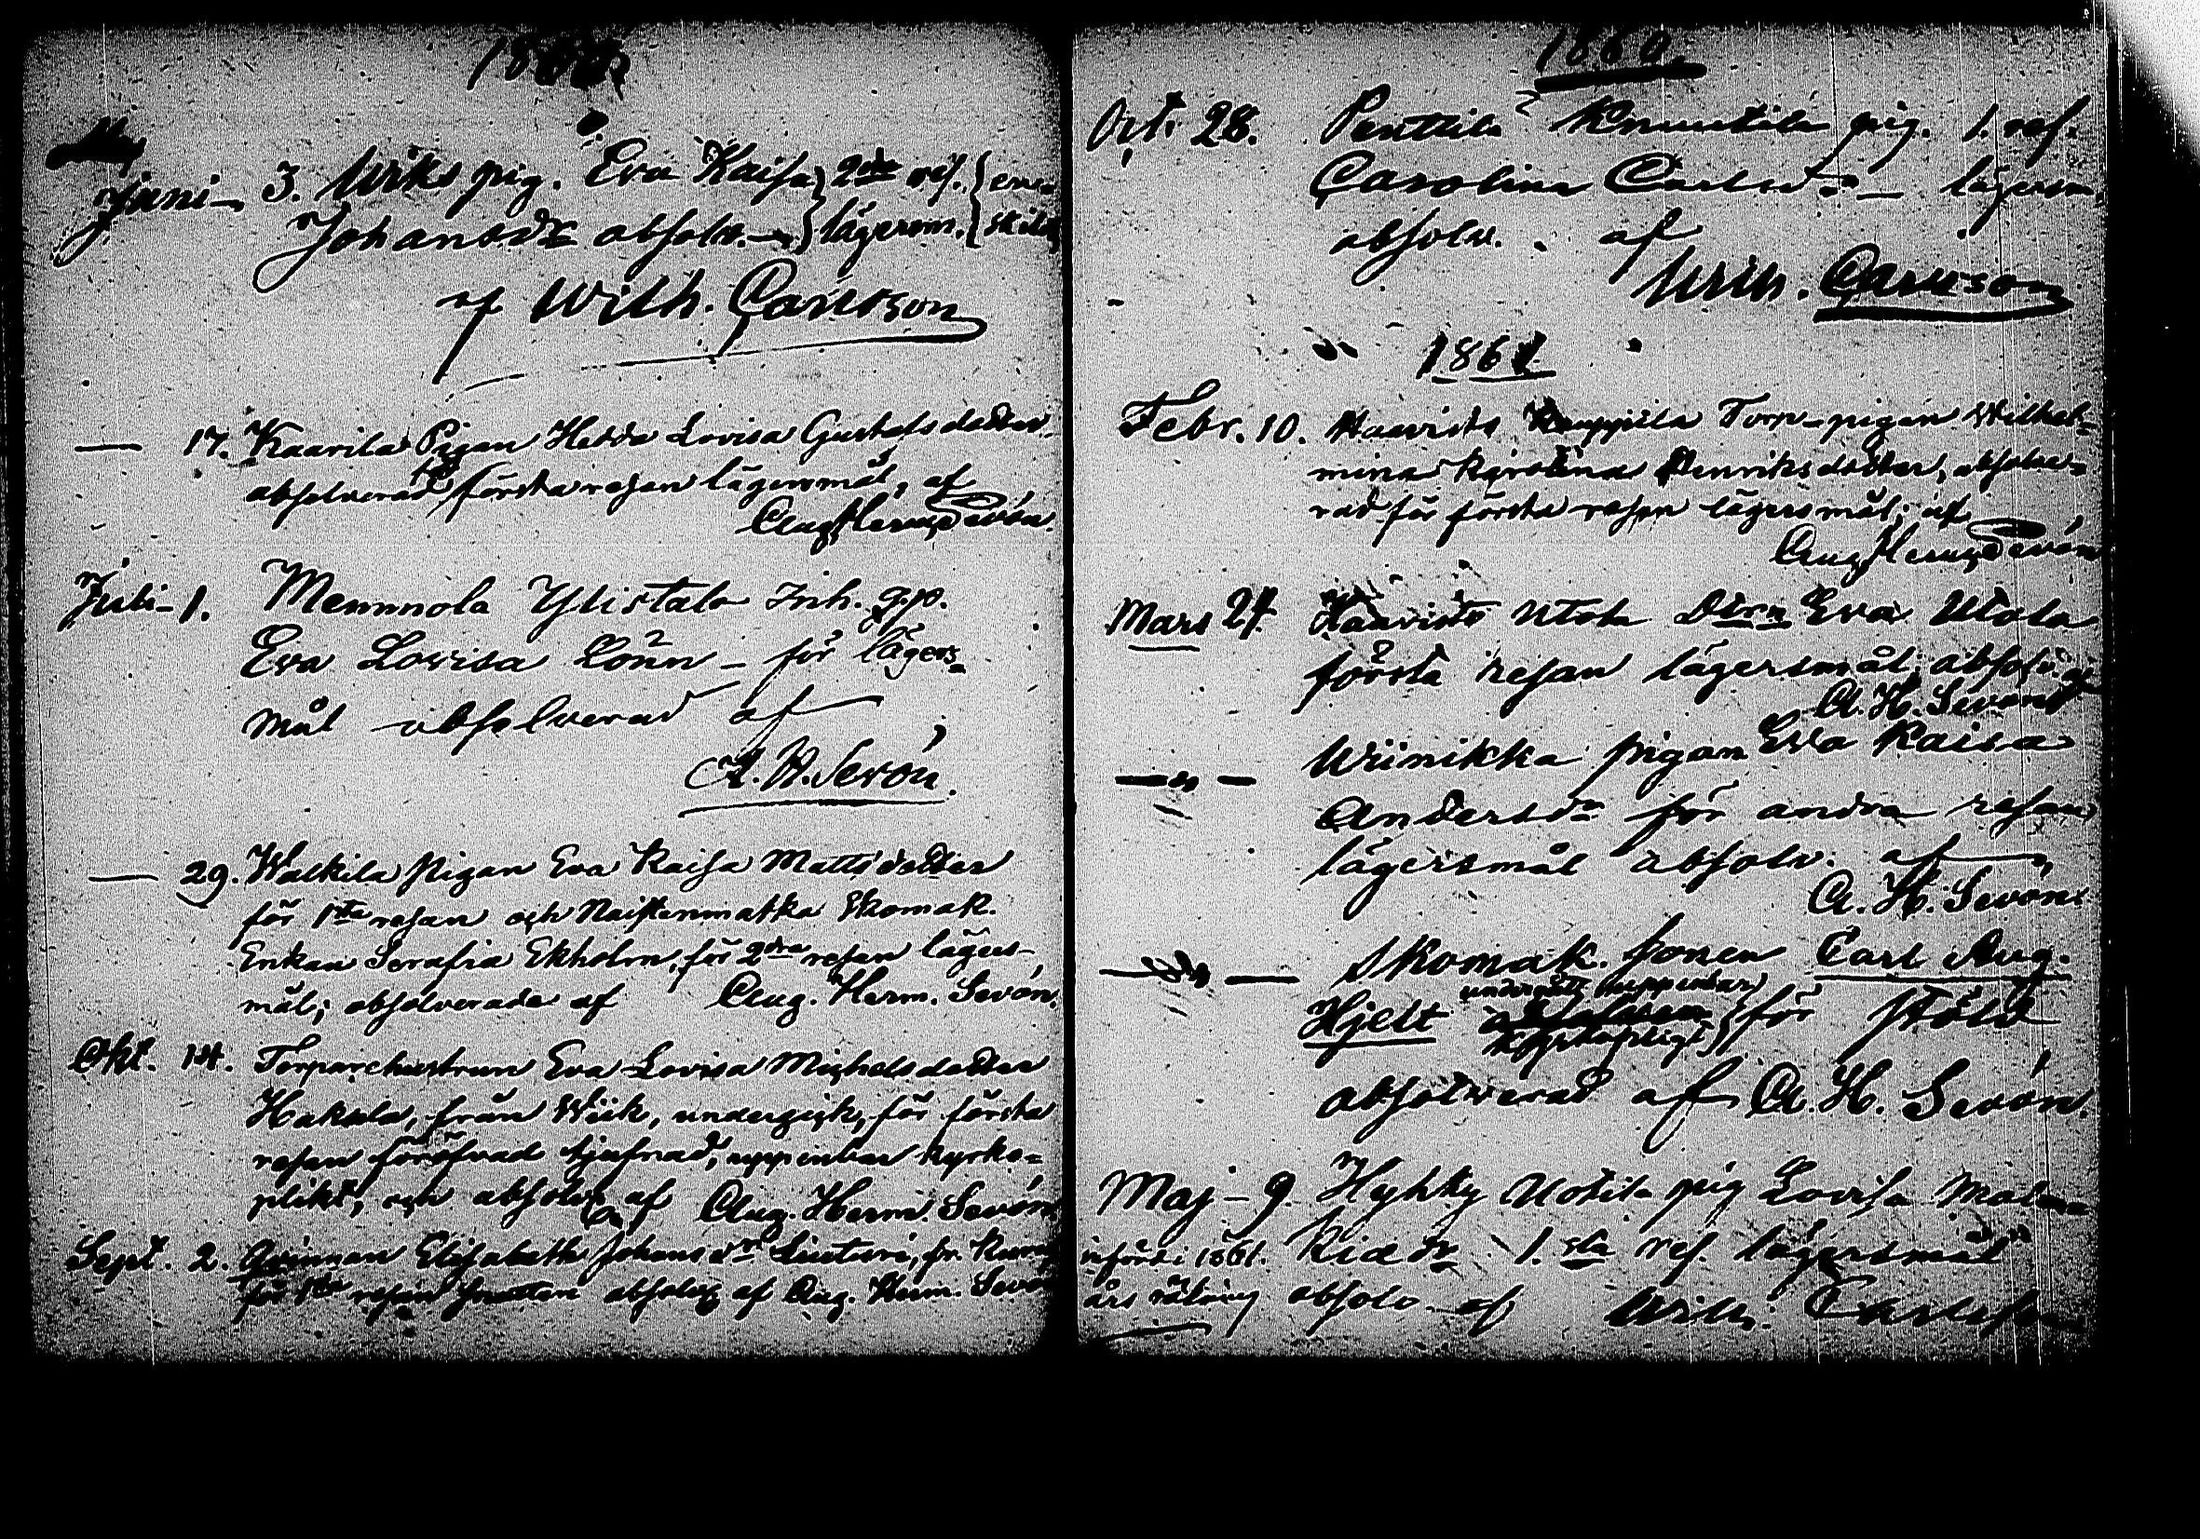 1860
Juni 3. Wiks pig. Eva Kaisa 2dra res. ens-
Johansdr absolv. lägersm. skild
af Wilh. Carlson
— 17. Kaarila Pigan Hedda Lovisa Gustafsdotter
absolverad för första resan lägersmål, af
Aug. Herm. Sevón.
Juli 1. Mennola Ylistalo Inh.
Eva Lovisa Lönn – för lägers-
mål absolverad af
A. H. Sevón.
— 29. Walkila pigan Eva Kaisa Mattsdotter
för 1sta resan och Naistenmatka Skomak.
Enkan Serafia Ekholm, för 2dra resan lägers-
mål; absolverade af Aug. Herm. Sevón.
Okt. 14. Torparehustrun Eva Lovisa Michelsdotter
Hakala, från Wiik, undergick, för första
resan föröfvad tjufnad, uppenbar kyrko-
plikt, och absolv. af Aug. Herm. Sevón
Sept. 2. Qvinnan Elisabeth Johansdr
för 1sta resan absolv. af Aug. Herm. Sevón
1860.
Oct. 28. Penttilä Knuutila pig. 1. res.
Carolina Carlsdr – lägersm.
absolv. af
Wilh. Carlson
1861
Febr. 10. Haavisto Kauppila Torp-pigan Wilhel-
mina Henriksdotter, absolve-
rad för första resan lägersmål; af
Aug. Herm. Sevón
Mars 24 Haavisto Utola Dtrn Eva Utola
första resan lägersmål absolv. af
A. H. Sevón
—"— Wiinikka pigan Eva Kaisa
Andersdr för andra resan
lägersmål absolv. af
A. H. Sevón
—"— Skomak. sonen Carl Aug.
undergått uppenbar
Hjelt kyrkopligt för stöld
absolverad af A. H. Sevón.
Maj – 9. Hyhky Uotila pig Lovisa
införd i 1861. 1.sta res. lägersmål
års räkning absolv. af Wilh.